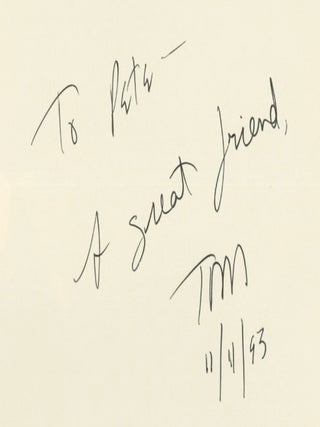 To Pete —
A great friend,
Tom
11/11/93